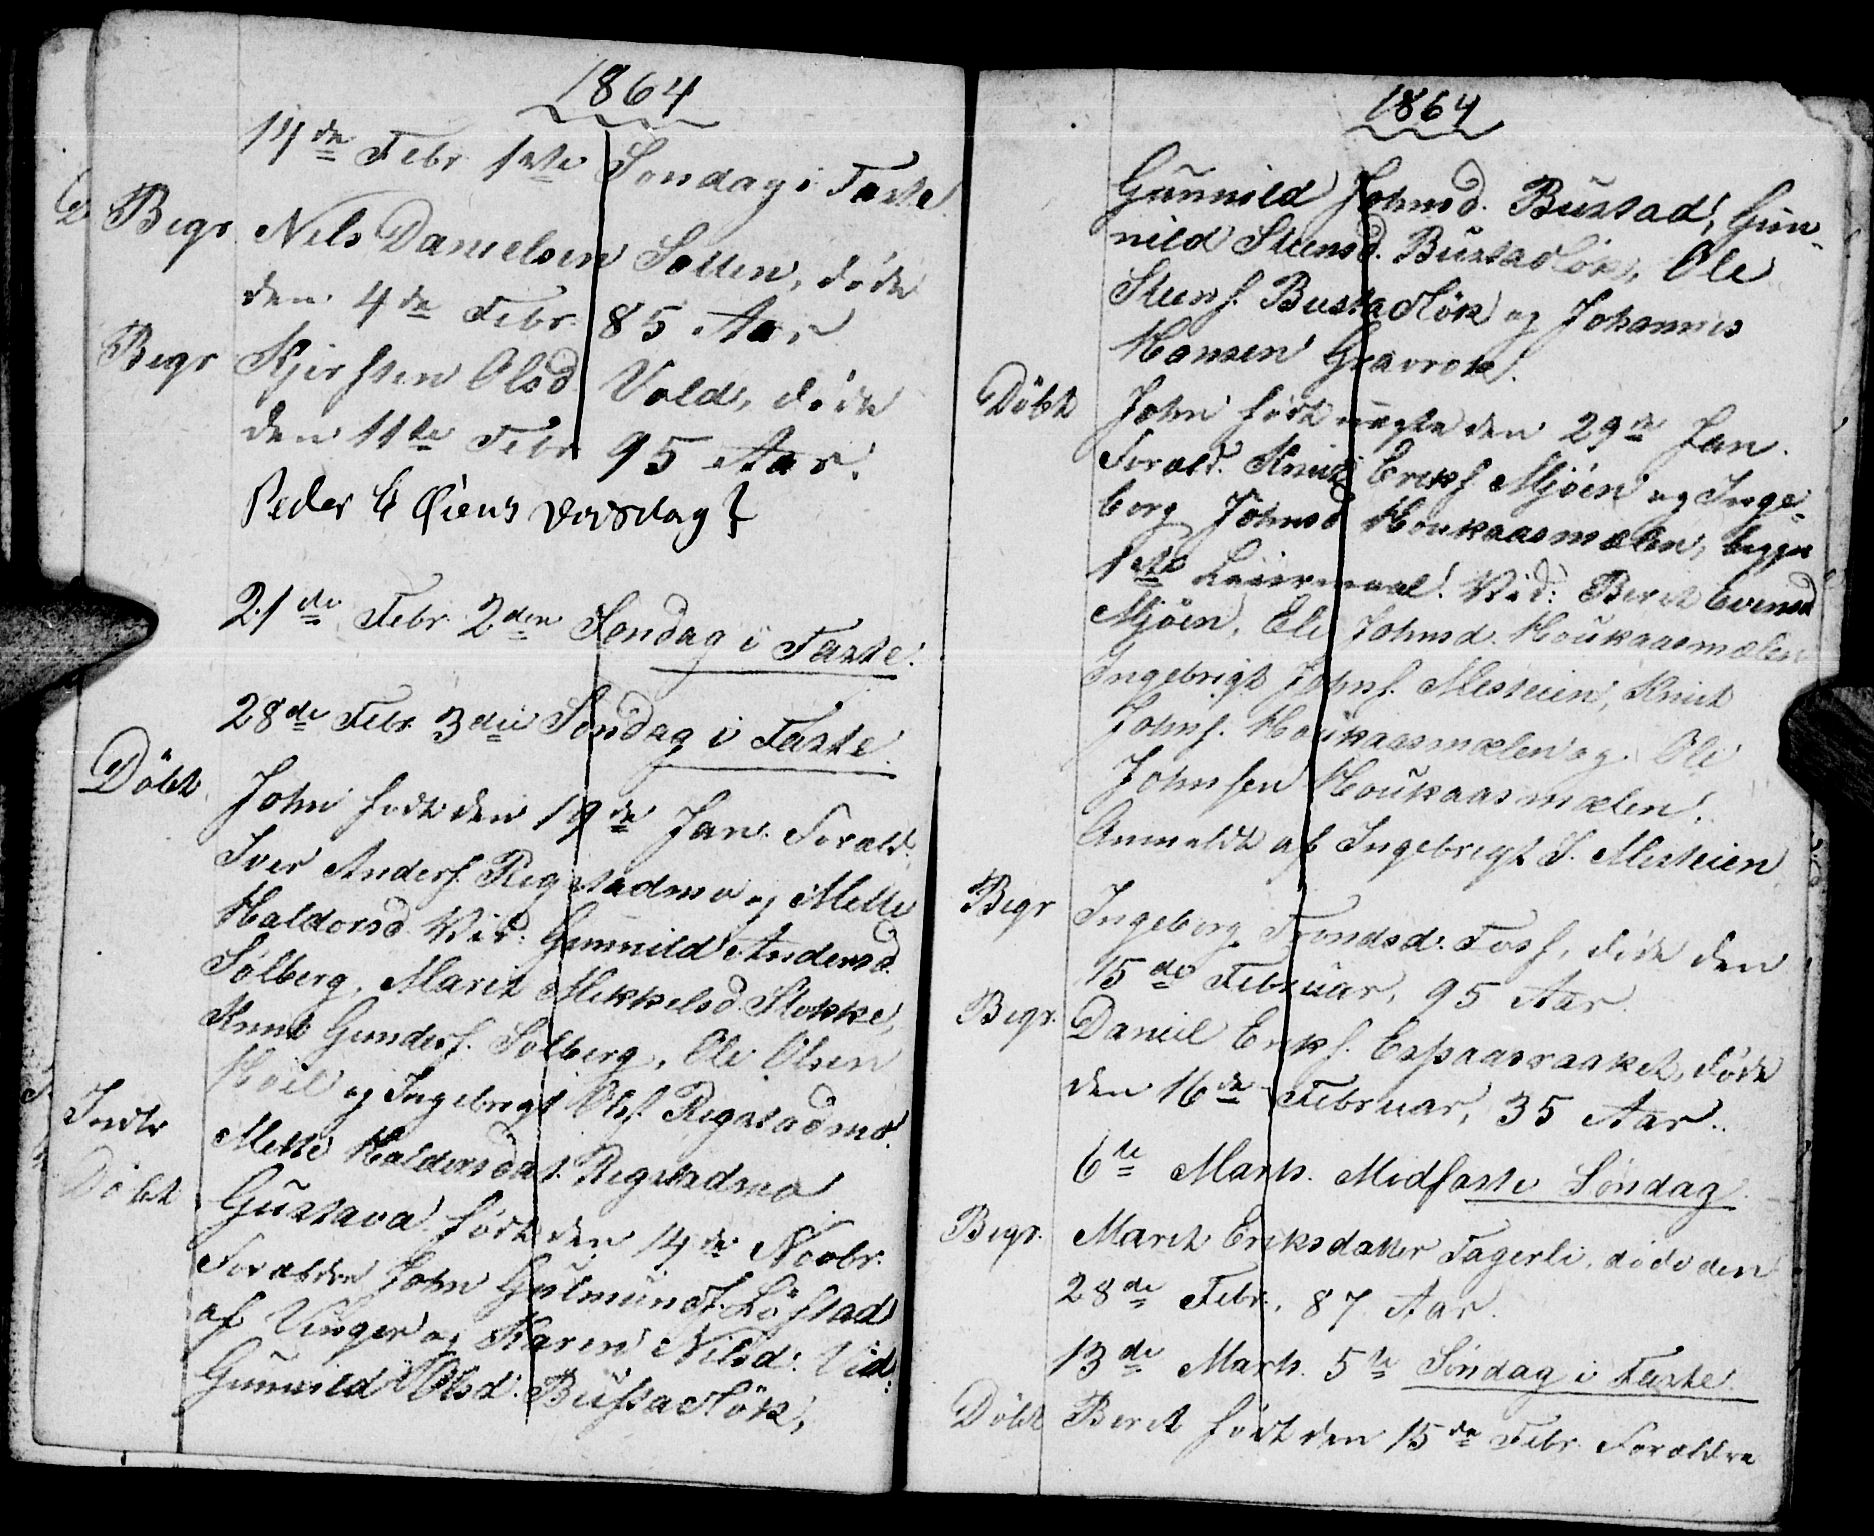 1864
14de Febr 1ste Søndag i Faste
Begr Nils Danielsen Sætten, døde
den 4de Febr. 85 Aar
Begr Kjersten Olsd Vold, døde
den 11te Febr 95 Aar.
Peder E Øiens Daasdag?
21de Febr 2den Søndag i Faste.
28de Febr 3die Søndag i Faste.
Döbt John født den 19de Jan. Foræld.
Iver Anders. Regstadmo og Mette
Haldorsd. Vid: Gunnild Andersd.
Sølberg, Marit Mikkelsd. Stokke,
Knut Gunders. Sølberg, Ole Olsen
Hoel og Ingebrigt Ols. Regstadmo.
Indtr Mette Haldorsdat. Regstadmo
Döbt Gustava født den 14de Novbr.
Forældre John Gulmunds. Löfstad
af Vinger og Karen Nilsd. Vid:
Gunnild Olsd. Bustadlök,
1864
Gunnild Johnsd. Bustad, Gun-
nild Steensd. Bustadlök, Ole
Steens. Bustadlök og Johannes
Hansen Gravrok.
Döbt John født uægte den 29de Jan.
Foræld. Knut Eriks. Mjöen og Inge-
borg Johnsd. Houkaasmælen, begges
1ste Leiermaal. Vid: Berit Evensd
Mjöen, Eli Johnsd. Houkaasmælen
Ingebrigt Johns. Mesteien, Knut
Johns. Houkaasmælen og Ole
Johnsen Houkaasmælen.
Anmeldt af Ingebrigt J. Mesteien
Begr Ingeborg Trondsd. Foss, døde den
15de Februar, 95 Aar.
Begr. Daniel Eriks. Espaasraaket, døde
den 16de Februar, 35 Aar.
6te Marts. Midfaste Søndag
Begr. Marit Eriksdatter Fagerli, døde den
28de Febr., 87 Aar.
13de Marts. 5te Søndag i Faste
Döbt Berit født den 15de Febr. Forældre